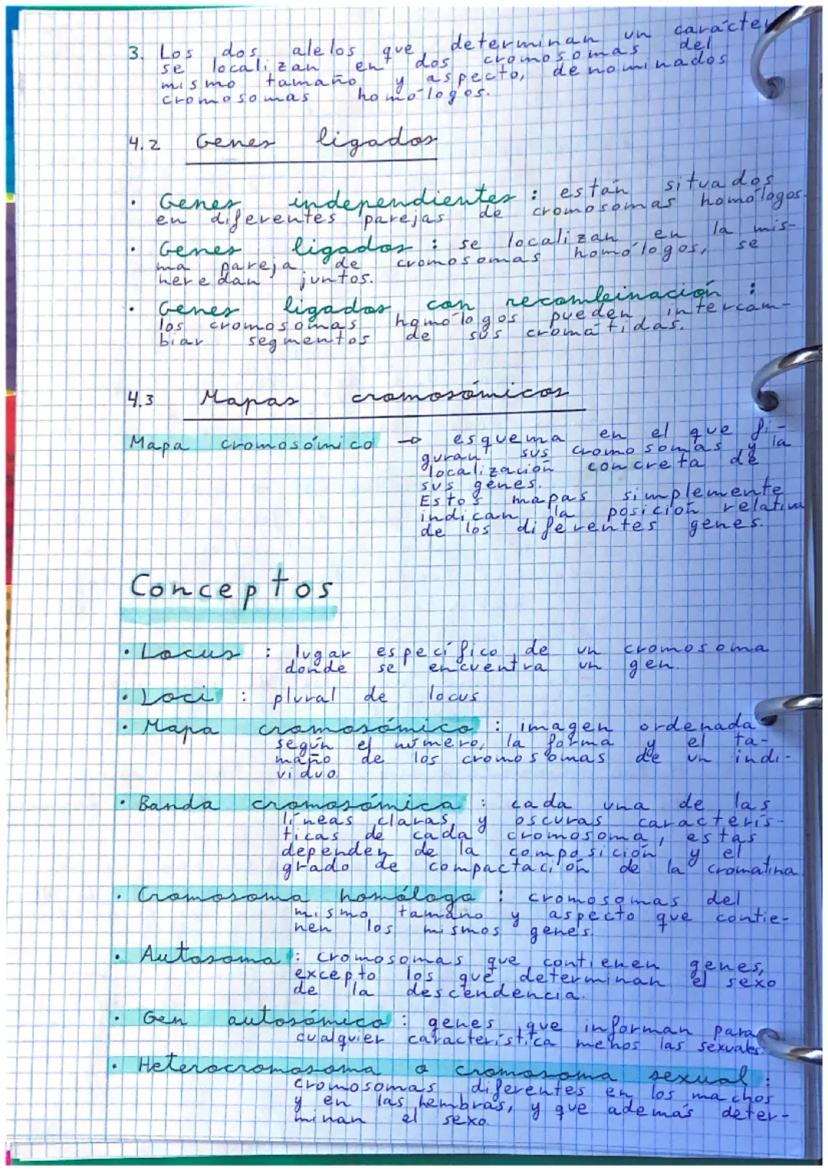 3. Los dos alelos que determinan un carácter
se localizan en dos cromosomas del
mismo tamaño y aspecto, denominados
cromosomas homólogos.
4.2 Genes ligados
• Genes independientes : están situados
en diferentes parejas de cromosomas homólogos.
• Genes ligados : se localizan en la mis-
ma pareja de cromosomas homólogos, se
heredan juntos.
• Genes ligados con recombinación :
los cromosomas homólogos pueden intercam-
biar segmentos de sus cromátidas.
4.3 Mapas cromosómicos
Mapa cromosómico → esquema en el que fi-
guran sus cromosomas y la
localización concreta de
sus genes.
Estos mapas simplemente
indican la posición relativa
de los diferentes genes.
Conceptos
• Locus : lugar específico de un cromosoma
donde se encuentra un gen.
• Loci : plural de locus
• Mapa cromosómico : imagen ordenada
según el número, la forma y el ta-
maño de los cromosomas de un indi-
viduo.
• Banda cromosómica : cada una de las
líneas claras y oscuras caracterís-
ticas de cada cromosoma, estas
dependen de la composición y el
grado de compactación de la cromatina.
• Cromosoma homólogo : cromosomas del
mismo tamaño y aspecto que contie-
nen los mismos genes.
• Autosoma : cromosomas que contienen genes,
excepto los que determinan el sexo
de la descendencia.
• Gen autosómico : genes que informan para
cualquier característica menos las sexuales.
• Heterocromosoma o cromosoma sexual :
cromosomas diferentes en los machos
y en las hembras, y que además deter-
minan el sexo.